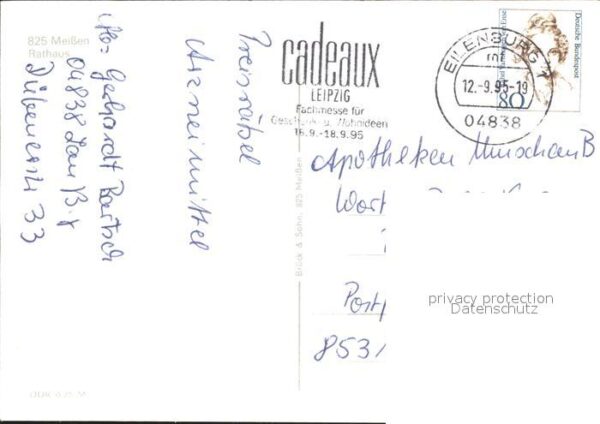 825 Meißen
Rathaus
Abs. Gebhardt Bartsch
04838
Dübenerstr 33
Preisrätsel
Arzneimittel
cadeaux
LEIPZIG
Fachmesse für
Geschenk- u. Wohnideen
16.9.-18.9.95
EILENBURG 1
mf
12.-9.95-19
04838
Deutsche Bundespost
80
Apotheken Umschau B
Wort
Post
853
Brück & Sohn, 825 Meißen
privacy protection
Datenschutz